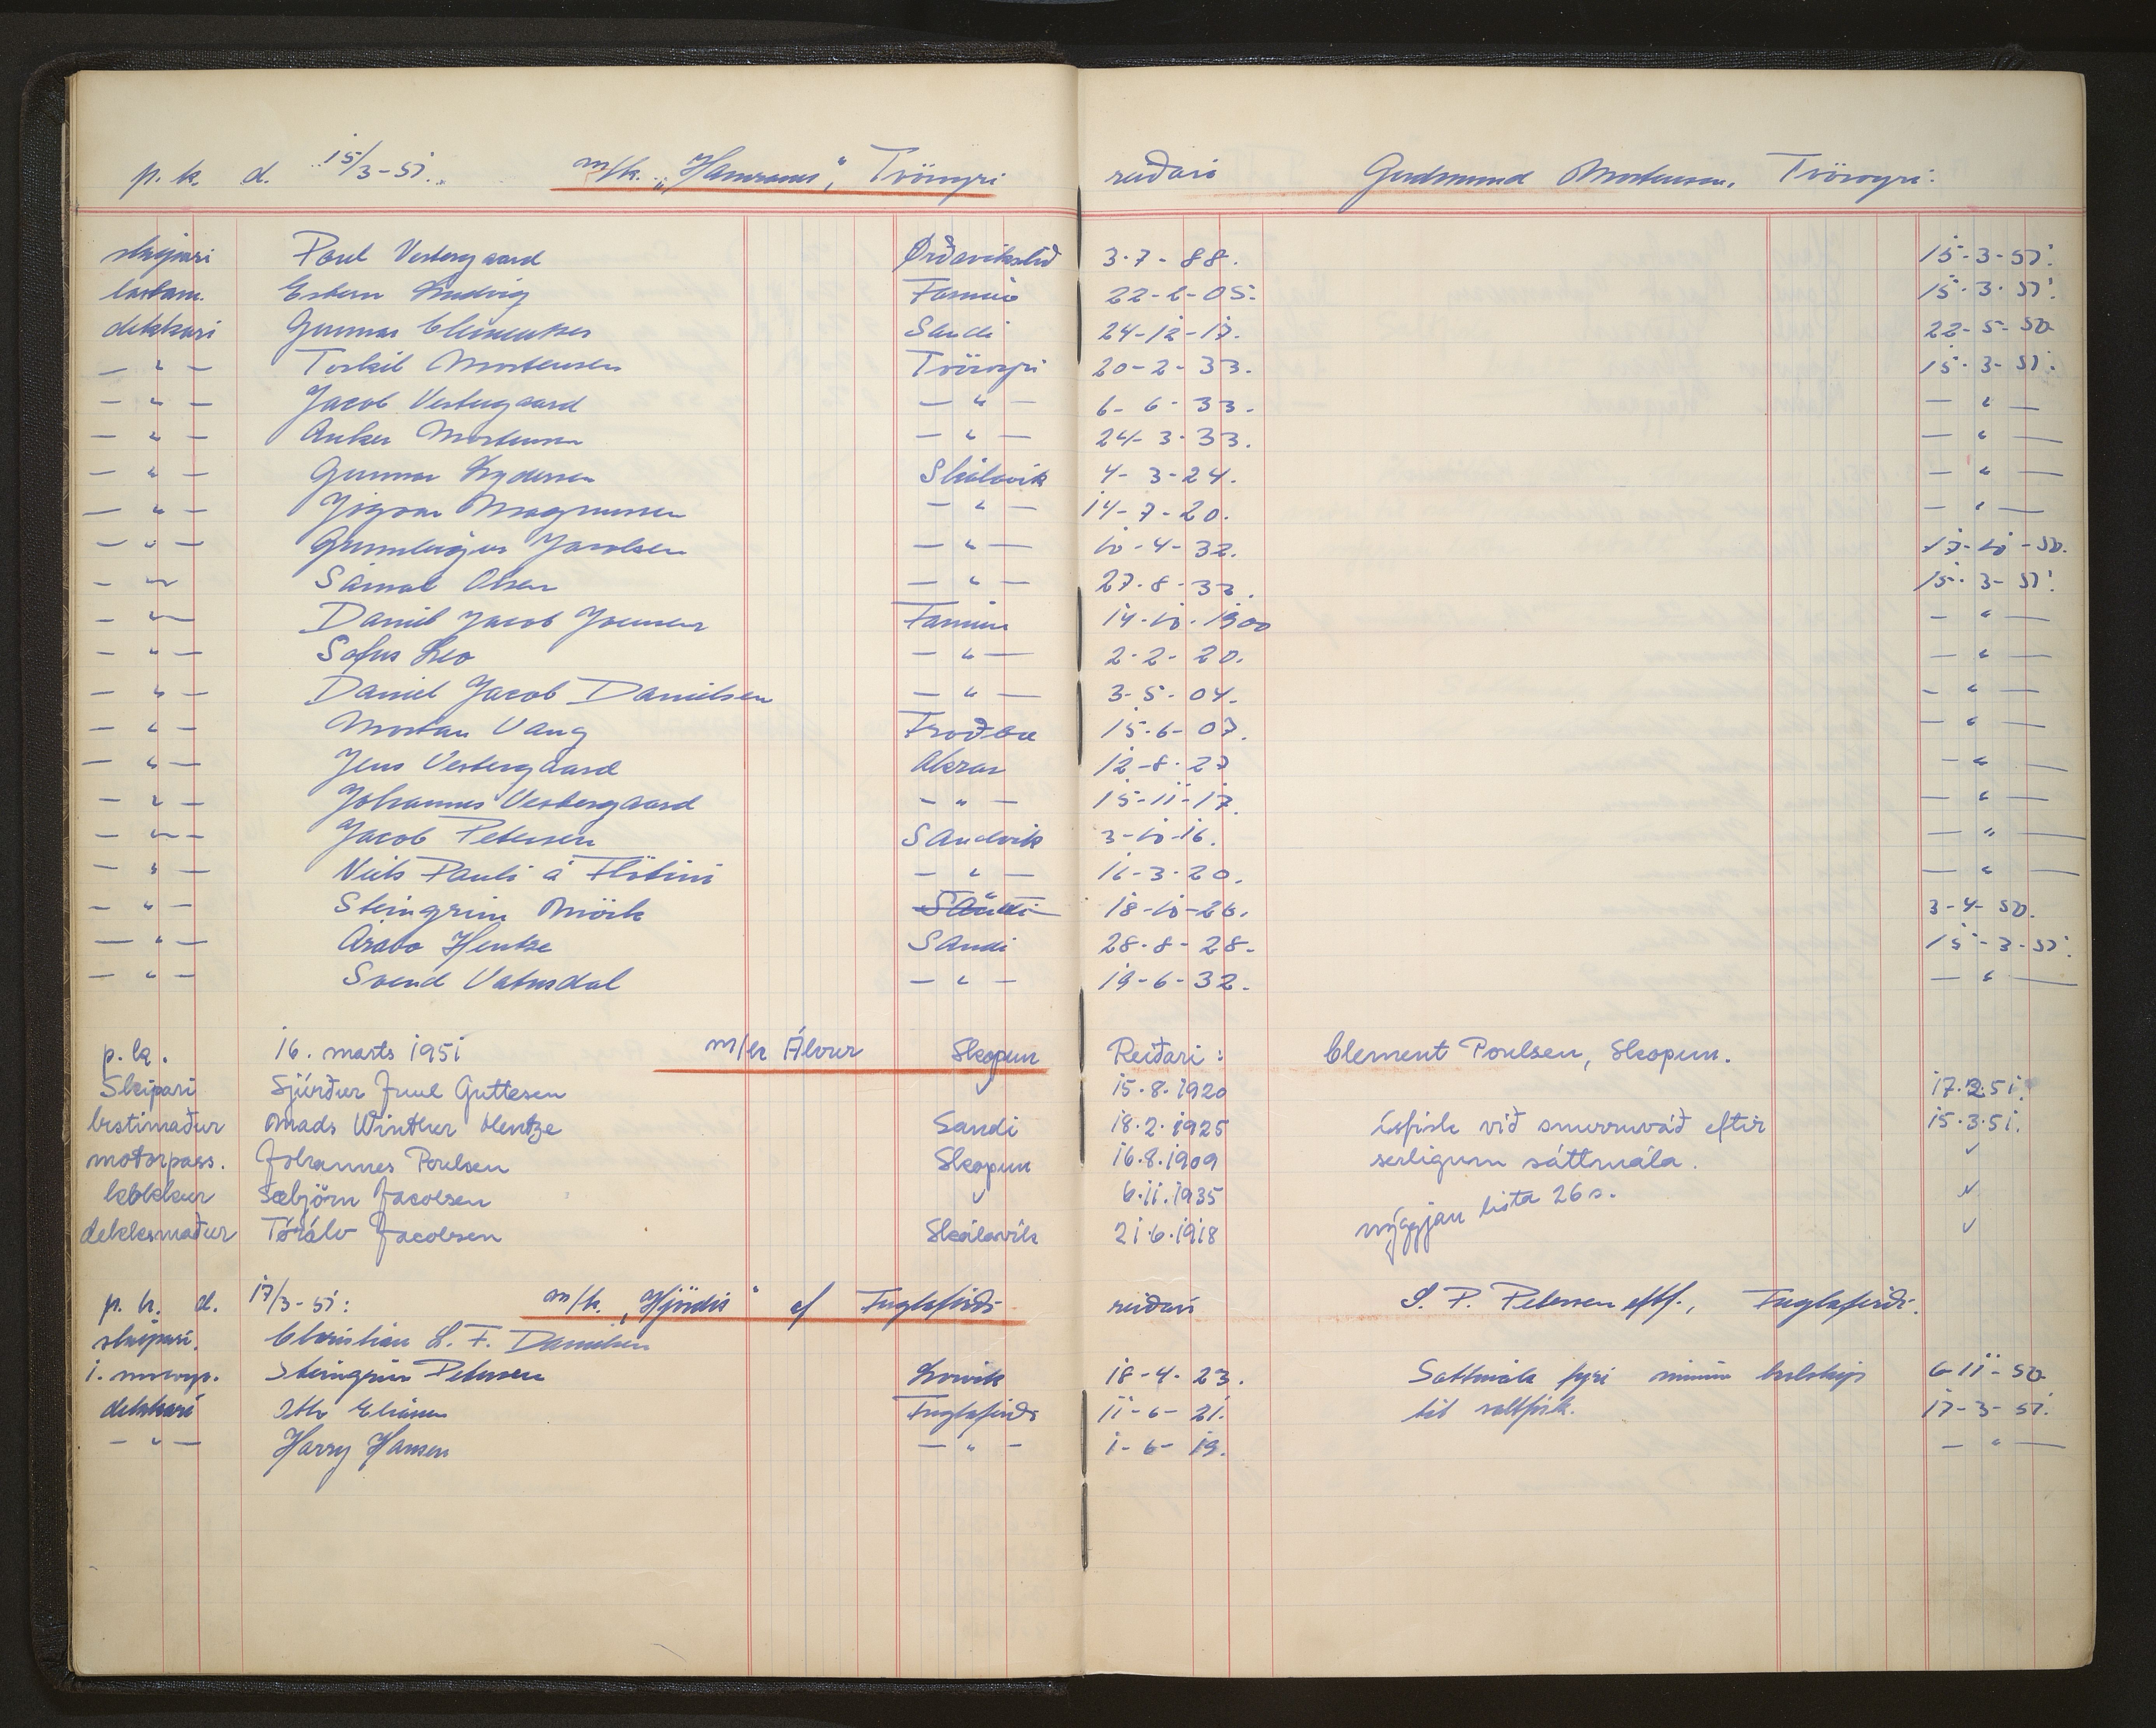 p. k. d. 15/3-51. m/k. "Hamranes", Tvöroyri reiðari Gudmund Mortensen, Tvöroyri.
skipari Poul Vestergaard Ørðavikslið 3-7-88. 15-3-51.
bestem. Esbern Ludvig Famin 22-2-05. 15-3-51.
dekkari Gunnar Clementsen Sandi 24-12-17. 22-5-50
— " — Torkil Mortensen Tvöroyri 20-2-33. 15-3-51.
— " — Jacob Vestergaard — " — 6-6-33. — " —
— " — Anker Mortensen — " — 24-3-33. — " —
— " — Gunnar Lydersen Skálavik 4-3-24. — " —
— " — Yngvar Magnussen — " — 14-7-20. — " —
— " — Jacobsen — " — 10-4-32. 17-10-50.
— " — Sámal Olsen — " — 27-8-33. 15-3-51.
— " — Daniel Jacob Joensen Famin 14-10-1900 — " —
— " — Sofus Leo — " — 2-2-20. — " —
— " — Daniel Jacob Danielsen — " — 3-5-04. — " —
— " — Mortan Vang Froðba 15-6-07. — " —
— " — Jens Vestergaard Akrar 12-8-27 — " —
— " — Johannes Vestergaard — " — 15-11-17. — " —
— " — Jacob Petersen Sandvik 3-10-16. — " —
— " — Niels Pauli á Fløtini — " — 16-3-20. — " —
— " — Steingrim Mörk Sandi 18-10-26. 3-4-50.
— " — Hentze Sandi 28-8-28. 15-3-51.
— " — Svend Vatnsdal — " — 19-6-32. — " —
p. k. 16. marts 1951 m/k Álvur Skopun Reiðari: Clement Poulsen, Skopun.
Skipari Sjúrður Juul Guttesen ✓ 15.8.1920 17.3.51.
bestimaður Mads Winther Hentze Sandi 18.2.1925 ísfisk við snurruváð eftir 15.3.51.
motorpass. Johannes Poulsen Skopun 16.8.1909 serligum sáttmála. ✓
kokkur Sæbjörn Jacobsen ✓ 6.11.1935 nýggjan lista 26 s. ✓
dekksmaður Tórálv Jacobsen Skálavík 21.6.1918 ✓
p. k. d. 17/3-51: m/k. "Hjördis" af Fuglafirði reiðari S. P. Petersen eftf., Fuglafirði.
skipari. Christian S. F. Danielsen
1. motorp. Steingrim Petersen Lorvik 18-4-23. Sattmála fyri minni holskip 6-11-50
dekkari Otto Eliasen Fuglafirði 11-6-21. til saltfisk. 17-3-51.
— " — Harry Hansen — " — 1-6-19. — " —